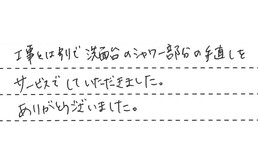 工事とは別で洗面台のシャワー部分の手直しを
サービスでしていただきました。
ありがとうございました。